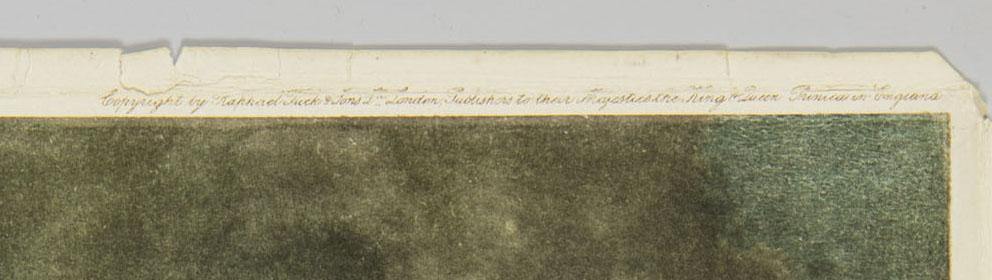 Copyright by Raphael Tuck & Sons Ld. London, Publishers to their Majesties the King & Queen Printed in England